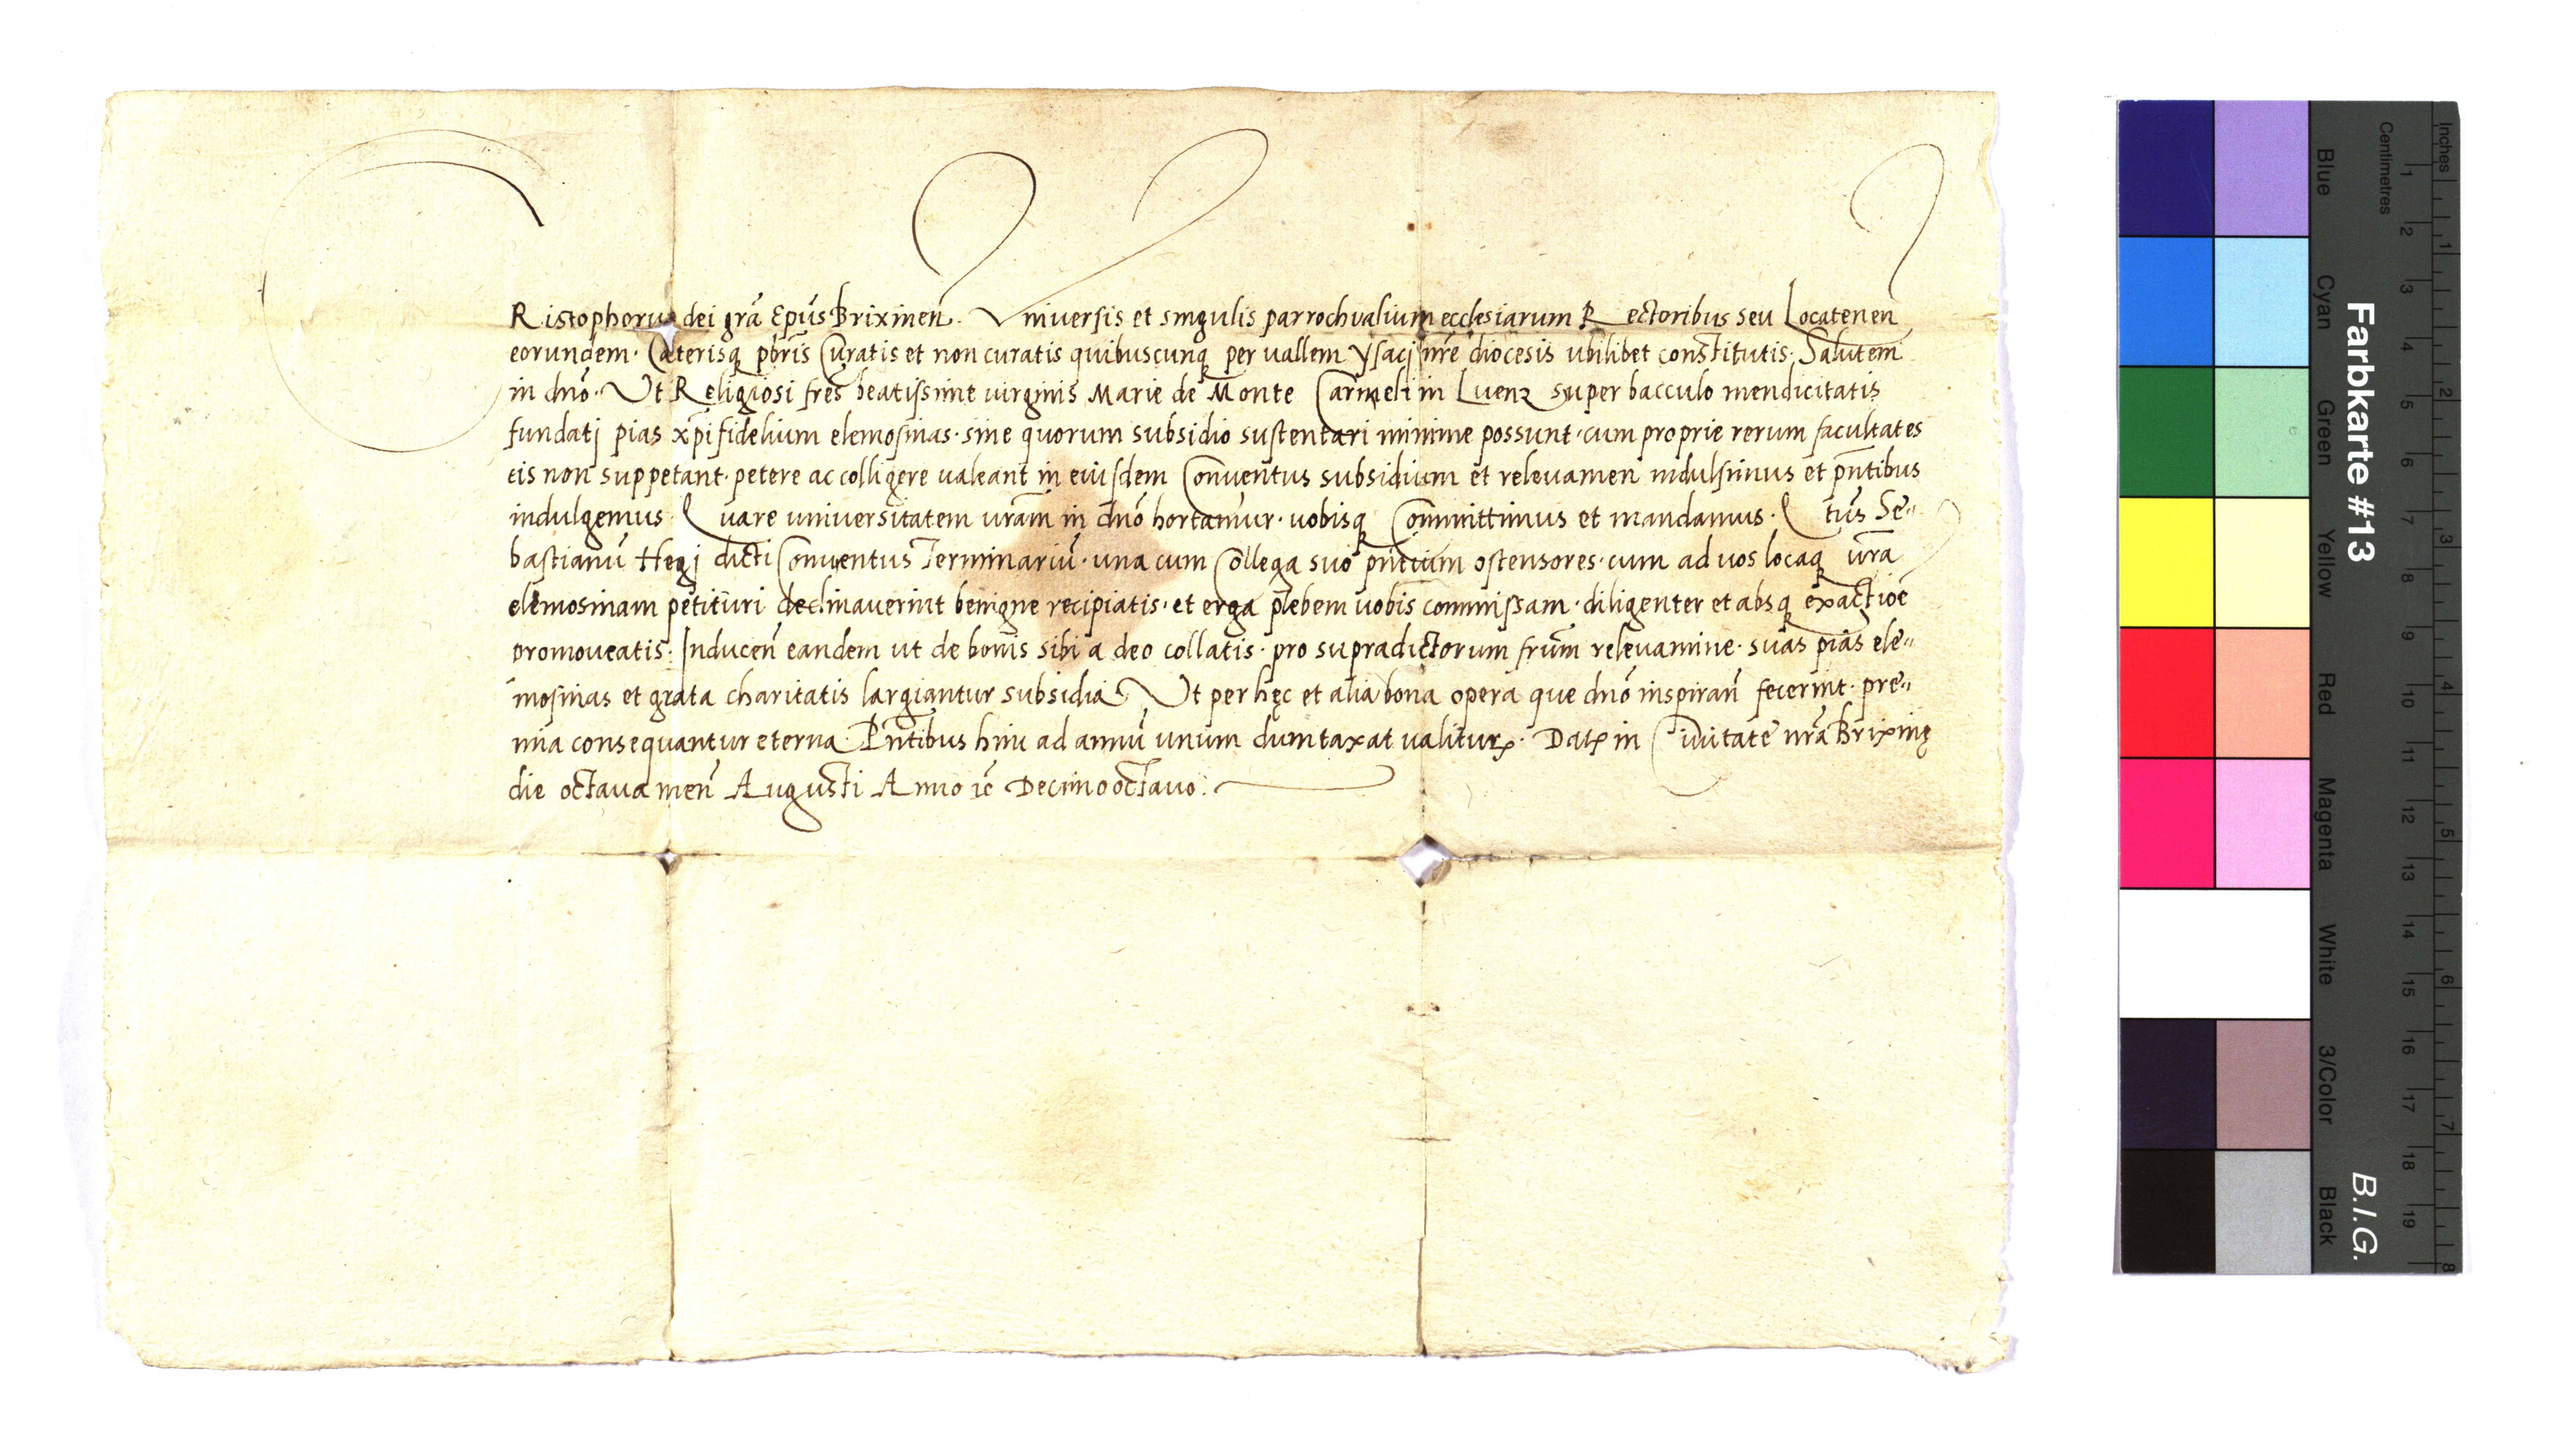 Ristophorus dei grã Epũs Brixineñ. Universis et singulis parrochialium ecclesiarum Rectoribus seu Locateneñ
eorundem. Caeterisq̃ pbrĩs Curatis et non curatis quibuscunq̃ per vallem Ysacj nr̃e diocesis ubilibet constitutis. Salutem
in dnõ. Ut Religiosi frẽs beatissime virginis Marie de Monte Carmeli in Luenz super bacculo mendicitatis
fundatj pias xp̃i fidelium elemosinas. sine quorum subsidio sustentari minime possunt. cum proprie rerum facultates
eis non suppetant. petere ac colligere valeant in eiusdem Conventus subsidium et relevamen indulsimus et pñtibus
indulgemus. Quare universitatem vrãm in dnõ hortamur. vobisq̃ Committimus et mandamus. Q̃tus Se„
bastianũ Hegj dicti Conventus Terminariũ. una cum Collega suo pñtium ostensores. cum ad vos locaq̃ vrã
elemosinam petituri declinaverint benigne recipiatis. et erga plebem vobis commissam. diligenter et absq̃ exactioẽ
promoveatis. Induceñ eandem ut de bonis sibi a deo collatis. pro supradictorum frũm relevamine. suas pias ele„
mosinas et grata charitatis largiantur subsidia. Ut per hęc et alia bona opera que dnõ inspirañ fecerint. pre„
mia consequantur eterna. Pñtibus hinc ad annũ unum dumtaxat valiturꝭ. Datꝭ in Civitate nrã Brixinę
die octava meñ Augusti Anno ꝛc̃ Decimooctavo.
Farbkarte #13
B.I.G.
Inches 1 2 3 4 5 6 7 8
Centimetres 1 2 3 4 5 6 7 8 9 10 11 12 13 14 15 16 17 18 19
Blue Cyan Green Yellow Red Magenta White 3/Color Black